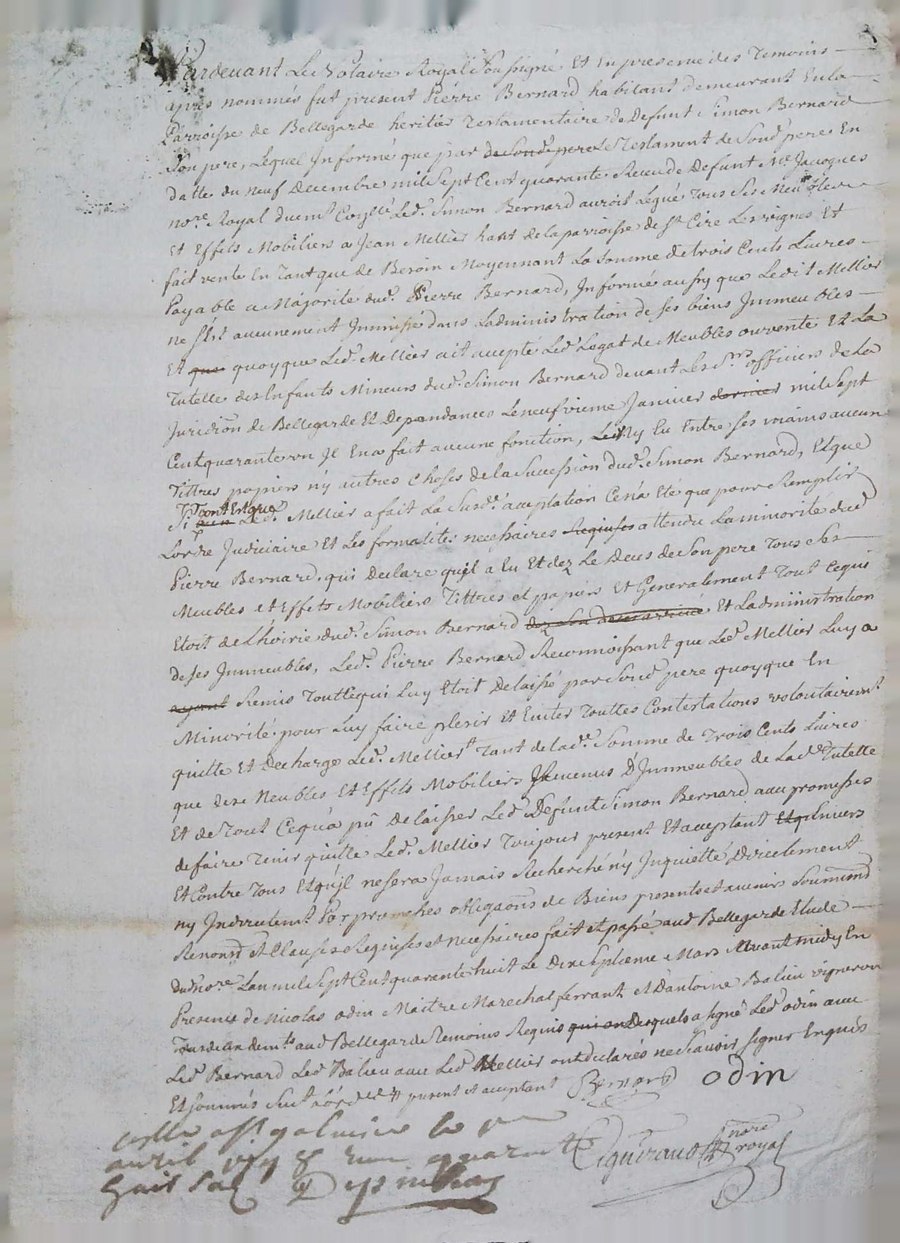 Pardevant Le Notaire Royal Soussigné, Et En presence des Temoins
apres nommés fut present Pierre Bernard habitant demeurant En la
Parroisse de Bellegarde heritier Testamentaire de Defunt Simon Bernard
Son pere, Lequel Informé que par de Sond. pere Le Testament de Sond. pere En
datte du neuf Decembre mil Sept Cent quarante Receu de Defunt Me Jacques
nore Royal dud. Led. Simon Bernard auroit Legué Tous Ses Meubles
Et Effets Mobiliers a Jean Mellier hant de la parroisse de St Cire Les vignes Et
fait vente En Tant que de Besoin Moyennant La Somme de trois Cents Livres
Payable a Majorité dud. Pierre Bernard, Informé aussy que Ledit Mellier
ne s'est aucunement Immissé dans L'administration de ses biens Immeubles
Et que quoyque Led. Mellier ait accepté Led. Legat de Meubles ou vente Et La
Tutelle des Enfants Mineurs dud. Simon Bernard devant Les Srs officiers de la
Juridion de Bellegarde Et Dependances Le neufvieme Janvier dernier mil Sept
Cent quarante un Il En a fait aucune fonction, Ny Eu Entre ses mains aucun
Tittres papiers n'y autres Choses de la Succession dud. Simon Bernard, Et que
Si Led. Mellier a fait La Susd. acceptation Ce n'a Eté que pour Remplir
L'ordre Judiciaire Et Les formalités necessaires Requises attendu La minorité dud.
Pierre Bernard, qui Declare qu'il a Eu Et dez Le Deces de Son pere Tous Ses
Meubles Et Effets Mobiliers Tittres et papiers Et Generalement Tout Ce qui
Etoit de L'hoirie dud. Simon Bernard Et L'administration
de ses Immeubles, Led. Pierre Bernard Reconnoissant que Led. Mellier Luy a
ayant Remis Tout Ce qui Luy Etoit Delaissé par Sond. pere quoyque En
Minorité pour Luy faire plesir Et Eviter Touttes Contestations volontairemt
quitte Et Decharge Led. Mellier Tant de lad. Somme de Trois Cents Livres
que des Meubles Et Effets Mobiliers Revenus D'Immeubles de Lad. Tutelle
Et de Tout Ce qu'a pû Delaisser Led. Defunt Simon Bernard avec promesses
de faire Tenir quitte Led. Mellier Toujour present Et acceptant Envers
Et Contre Tous Et qu'il ne sera Jamais Recherché n'y Inquietté Directement
ny Indirectemt Par promesses obligaons de Biens presents et avenirs Soumions
Renonons Et Clauses Requises et necessaires fait et passé aud. Bellegarde Etude
dud. nore L'an mil Sept Cent quarante huit Le Dix Septieme Mars Avant midy En
Presence de Nicolas odin Maitre Marechal ferrant Et D'antoine Balieu vigneron
demts aud. Bellegarde Temoins Requis Desquels a signé Led. odin avec
Led. Bernard Led. Balieu avec Led. Mellier ont declarés ne Scavoir Signer Enquis
Et Sommés present et acceptant
Bernard odin
nore
royal
avril
huit